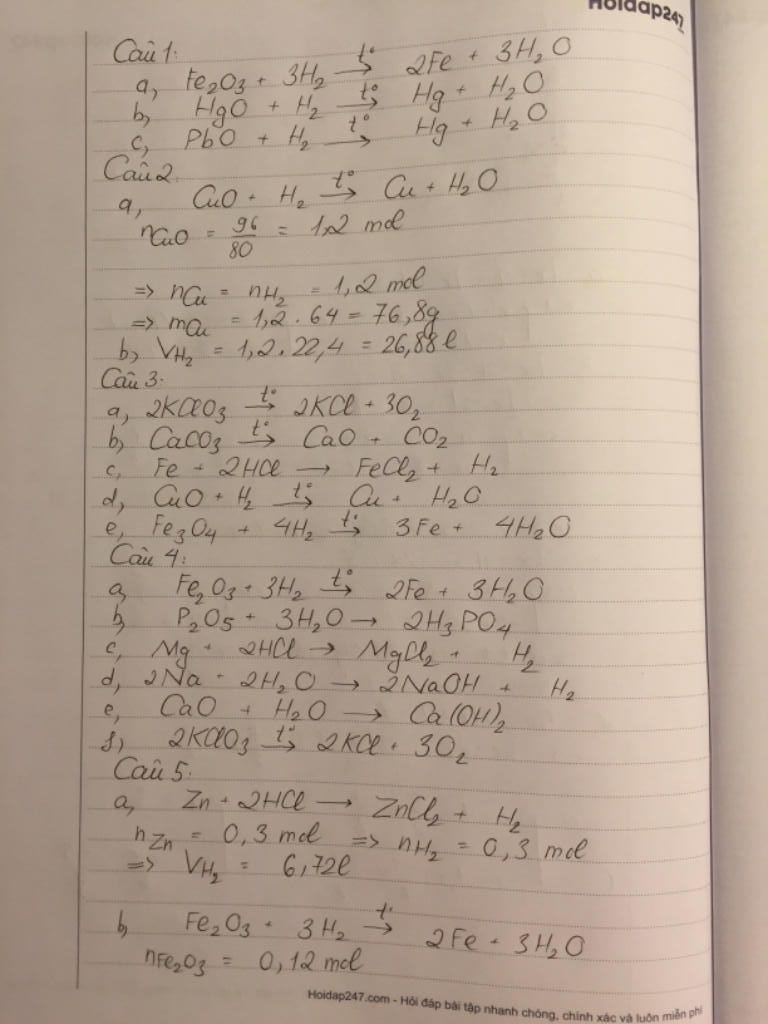 Hoidap247
Câu 1:
a, Fe₂O₃ + 3H₂ →(t°) 2Fe + 3H₂O
b, HgO + H₂ →(t°) Hg + H₂O
c, PbO + H₂ →(t°) Hg + H₂O
Câu 2.
a, CuO + H₂ →(t°) Cu + H₂O
nCuO = 96/80 = 1,2 mol
=> nCu = nH₂ = 1,2 mol
=> mCu = 1,2 . 64 = 76,8g
b, VH₂ = 1,2 . 22,4 = 26,88 l
Câu 3:
a, 2KClO₃ →(t°) 2KCl + 3O₂
b, CaCO₃ →(t°) CaO + CO₂
c, Fe + 2HCl → FeCl₂ + H₂
d, CuO + H₂ →(t°) Cu + H₂O
e, Fe₃O₄ + 4H₂ →(t°) 3Fe + 4H₂O
Câu 4:
a, Fe₂O₃ + 3H₂ →(t°) 2Fe + 3H₂O
b, P₂O₅ + 3H₂O → 2H₃PO₄
c, Mg + 2HCl → MgCl₂ + H₂
d, 2Na + 2H₂O → 2NaOH + H₂
e, CaO + H₂O → Ca(OH)₂
f, 2KClO₃ →(t°) 2KCl + 3O₂
Câu 5.
a, Zn + 2HCl → ZnCl₂ + H₂
nZn = 0,3 mol => nH₂ = 0,3 mol
=> VH₂ = 6,72l
b, Fe₂O₃ + 3H₂ →(t°) 2Fe + 3H₂O
nFe₂O₃ = 0,12 mol
Hoidap247.com - Hỏi đáp bài tập nhanh chóng, chính xác và luôn miễn phí